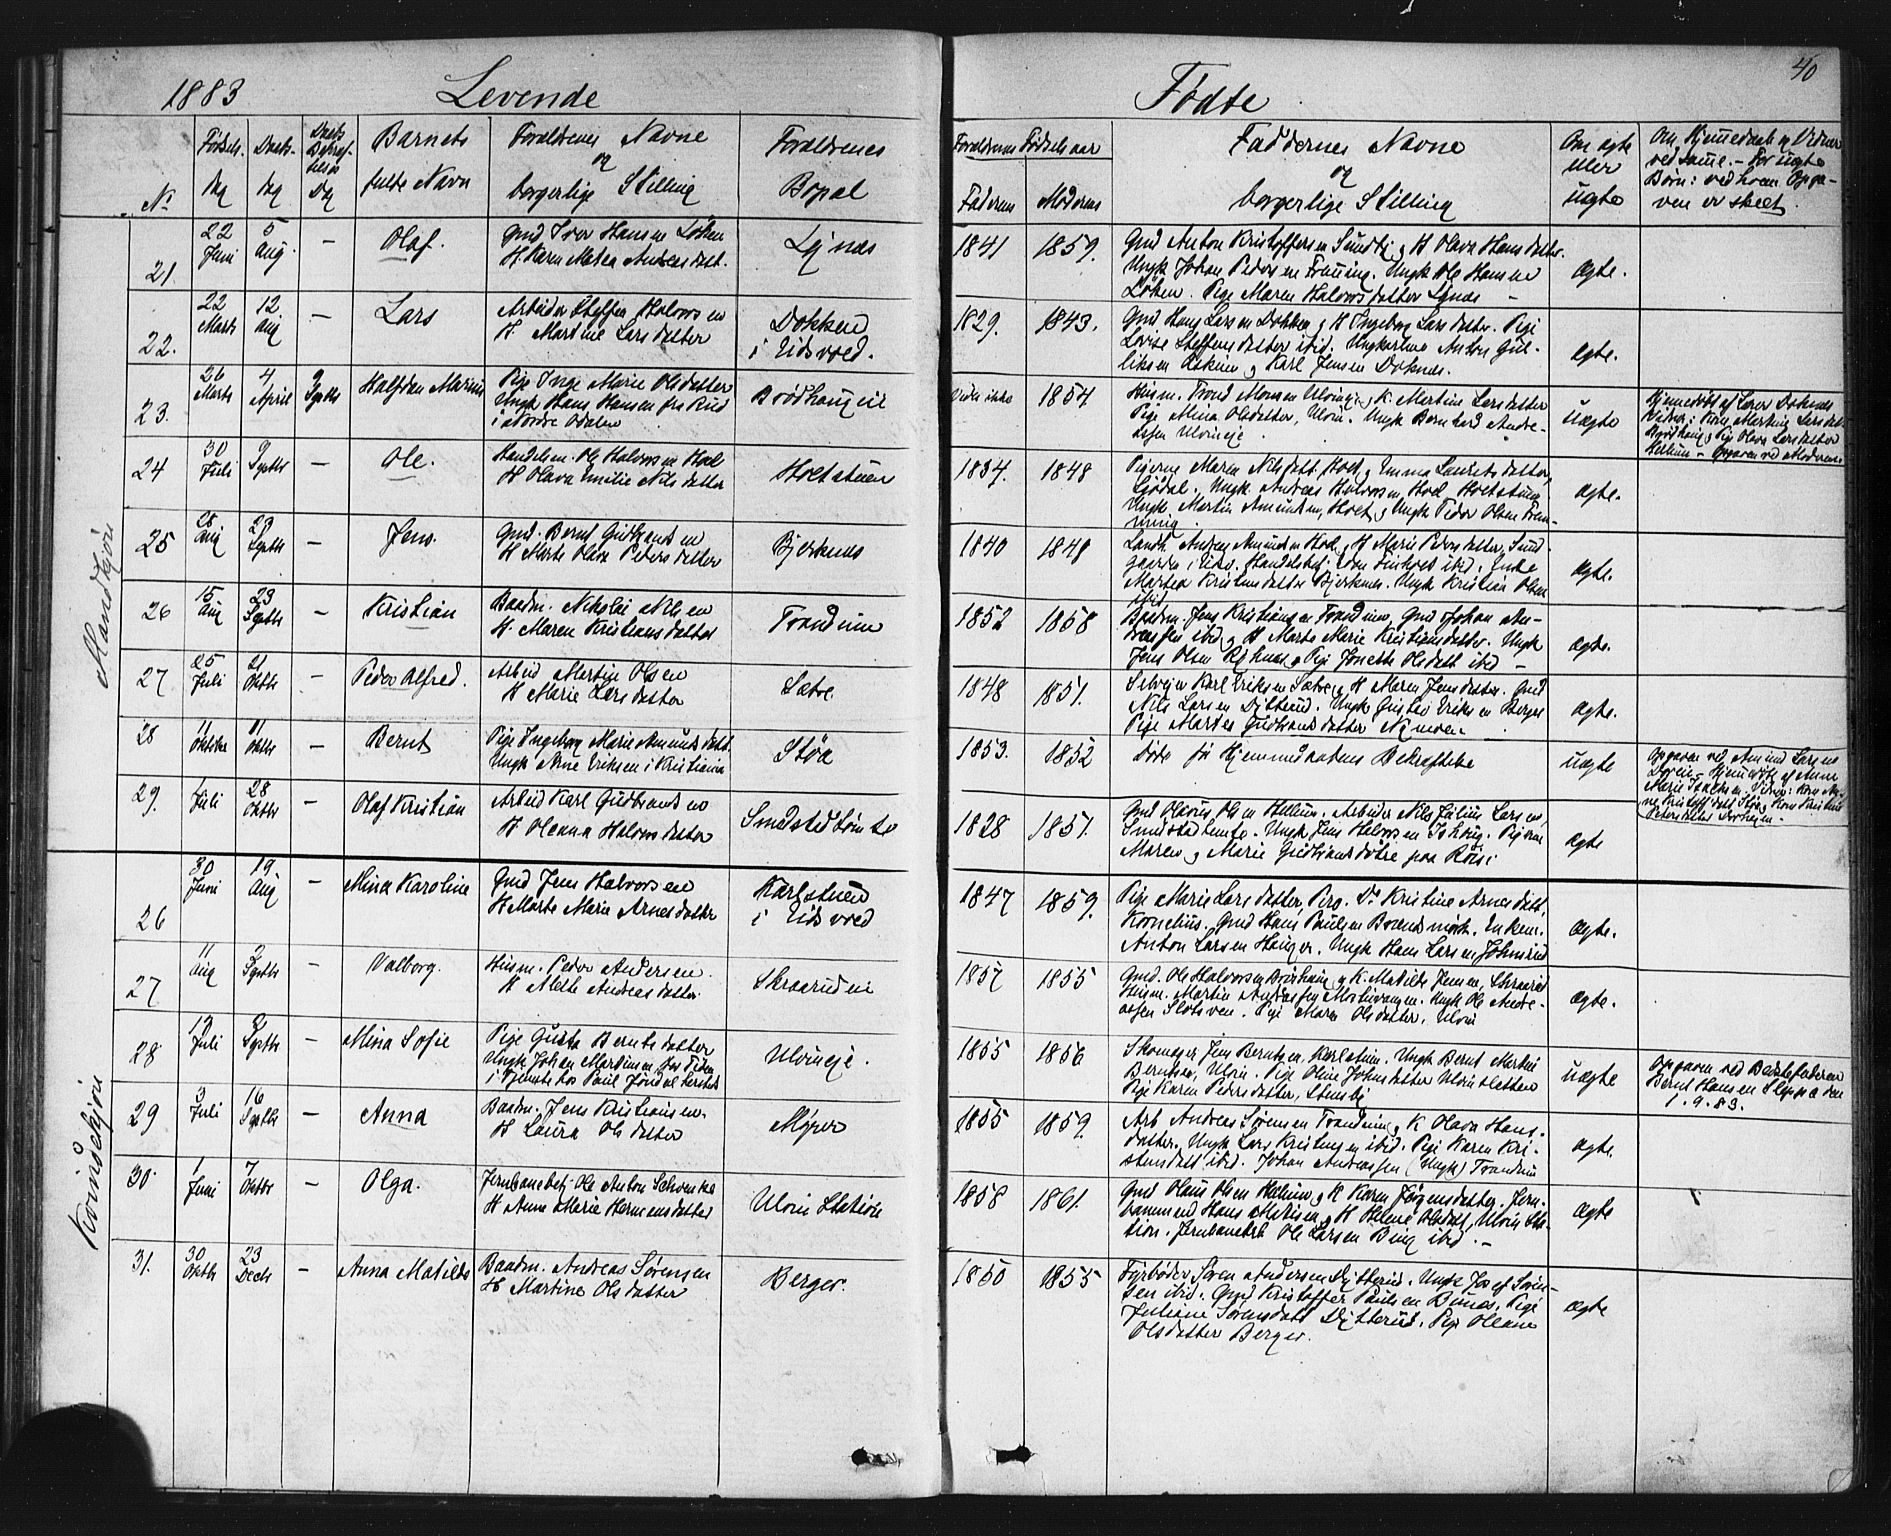 1883 Levende Fødte 40
No
Fødsels dag
Daabs dag
Daabs Bekræftelses Dag
Barnets fulde Navn
Forældrenes Navne og borgerlige Stilling
Forældrenes Bopæl
Forældrenes Fødselsaar
Faderens
Moderens
Faddernes Navne og borgerlige Stilling
Om ægte eller uægte
Om Hjemmedaab og Vidner ved samme. - For uægte Børn: ved hvem Opgaven er skeet.
Mandkjøn
21. 22 Juni 5 Aug. - Olaf.
Gmd Iver Hansen Løken
H. Karen Matea Andreasdatt.
Lynæs
1841 1859.
Gmd Anton Kristoffersen Sundby og H Olava Hansdatter.
Ungk Johan Pedersen Fræning. Ungk Ole Hansen
Løken. Pige Maren Halvorsdatter Lynæs -
ægte.
22. 22 Marts 12 Aug - Lars
Arbeider Steffen Halvorsen
H. Martine Larsdatter
Dokken
i Eidsvold.
1829. 1843.
Gmd. Hans Larsen Dokken og H Ingeborg Larsdatter. Pige
Lovise Steffensdatter ibid. Ungkarlene Anton Gul-
liksen Askim og Karl Jensen Doknæs.
ægte.
23. 26 Marts 4 April 9 Septbr Halfdan Marius
Pige Inge Marie Olsdatter
Ungk Hans Hansen fra Rud
i Nordre Odalen
Brødhaugeie
Vides ikke 1854
Husm. Trond Monsen Ulvineie og K. Martine Larsdatter
Pige Mina Olsdatter, Ulvin. Ungk Bernhard Andre-
assen Ulvineie.
uægte
Hjemmedøbt af Lærer Doknæs
24 30 Juli 9 Septbr - Ole.
Handelsm. Ole Halvorsen Hoel
H Olava Emilie Nilsdatter
Holtstuen
1834. 1848
Pigerne Maren Nilsdatt. Hoel, og Emma Lauritsdatter,
Sjødal. Ungk. Andreas Halvorsen Hoel Holtstuen
Ungk. Martin Amundsen, Hoel, og Ungk Peder Olsen Fræn-
ning.
ægte.
25 28 Aug 23 Septbr - Jens.
Gmd. Bernt Gudbrandsen
H Marte Olea Pedersdatter
Bjerknæs
1840 1848
Landh. Andreas Amundsen Hoel, H Marie Pedersdatter, Sund-
Martea Kristensdatter Bjerknæs. Ungk Kristian Olsen
ibid
ægte.
26 15 Aug 23 Septbr - Kristian
Baadm. Nikolai Nilsen
H. Maren Kristiansdatter
Trandum
1852 1858
Baadm. Jens Kristiansen Trandum, Gmd Johan An-
dreassen ibid og H Marte Marie Kristiansdatter. Ungk
Jens Olsen og Pige Jonette Olsdatt ibid -
ægte.
27 25 Juli 21 Oktbr - Peder Alfred.
Arbeid Martin Olsen
H Marie Larsdatter
Sætre
1848 1851.
Selveier Karl Eriksen Sætre og H Maren Jensdatter. Gmd
Nils Larsen Dytterud. Ungk Gustav Eriksen Berger
Pige Martea Gudbrandsdatter Nymoen
ægte.
28 11 Oktober 11 Oktbr - Bernt
Pige Ingeborg Marie Amundsdatt.
Ungk Arne Eriksen i Kristiania
Støa
1853. 1852
Døde før Hjemmedaabens Bekræftelse
uægte
29. 4 Juli 28 Oktbr - Olaf Kristian
Arbeid Karl Gudbrandsen
H Oleana Halvorsdatter
Smedstad Lømte
1828 1851.
Gmd Olaus Olsen Hellum. Arbeider Nils Julius Larsen,
Maren og Marie Gudbrandsdøtre paa Roise
ægte
Kvindekjøn
26 30 Juni 19 Aug - Mina Karoline
Gmd Jens Halvorsen
H Marte Marie Arnesdatter
Karlstuen
i Eidsvold
1847 1859.
Pige Marie Larsdatter, Piro. Do Kristine Arnesdatt.
Kornelius. Gmd Hans Paulsen Brændmoek. Enkem.
Anton Larsen Hauger. Ungk Hans Larsen Johnsrud
ægte.
27 11 Aug 2 Septbr - Valborg.
Husm. Peder Andersen.
H Mette Andreasdatter.
Skraarudeie
1857 1855
Gmd. Ole Halvorsen Brøshaug og K. Matilde Jensen, Skraarud
Husm. Martin Andreassen Mortvangen. Ungk Ole Andre-
assen Slotsveen. Pige Maren Olsdatter, Ulvin
ægte.
28 13 Juli 2 Septbr - Mina Sofie
Pige Gusta Berntsdatter
Ungk Johan Martinsen fra Toten
i Tjeneste hos Paul
Ulvineie.
1855 1856
Skomager Jens Berntsen, Karlstuen. Ungk Bernt Martin
Berntsen, Ulvin. Pige Oline Johnsdatter Ulvinsletten
Pige Karen Pedersdatter, Stensby
uægte
Opgaven ved Bedstefaderen
Bernt Hansen Sleppa den
1.9.83.
29 3 Juli 16 Septbr - Anna
Baadm. Jens Kristiansen.
H Laura Olsdatter
Møper
1855 1859.
Arb Andreas Sørensen Trandum og K Olava Hans-
datter. Ungk Lars Kristensen ibid. Pige Karen Kri-
stensdatt ibid. Johan Andreassen (Ungk) Trandum
ægte.
30. 1 Juni 7 Oktbr - Olga.
Jernbanebetj. Ole Anton Schvenke
H Anne Marie Hermensdatter
Ulvin Station
1858 1861.
Gmd Olaus Olsen Hellum og K Karen Jørgensdatter. Jern-
banemand Hans Madsen og H Helene Olsdatt, Ulvin Sta-
tion. Jernbanearb Ole Larsen Bing ibid. -
ægte
31. 30 Oktbr 23 Decb - Anna Matilde
Baadm. Andreas Sørensen
H Martine Olsdatter
Berger.
1850 1855
Fyrbøder Søren Andersen Dytterud. Ungk Josef Søren-
sen ibid. Gmd Kristoffer Paulsen Bunes. Pige
Juliane Sørensdatt Dytterud. Pige Oleane
Olsdatter Berger.
ægte